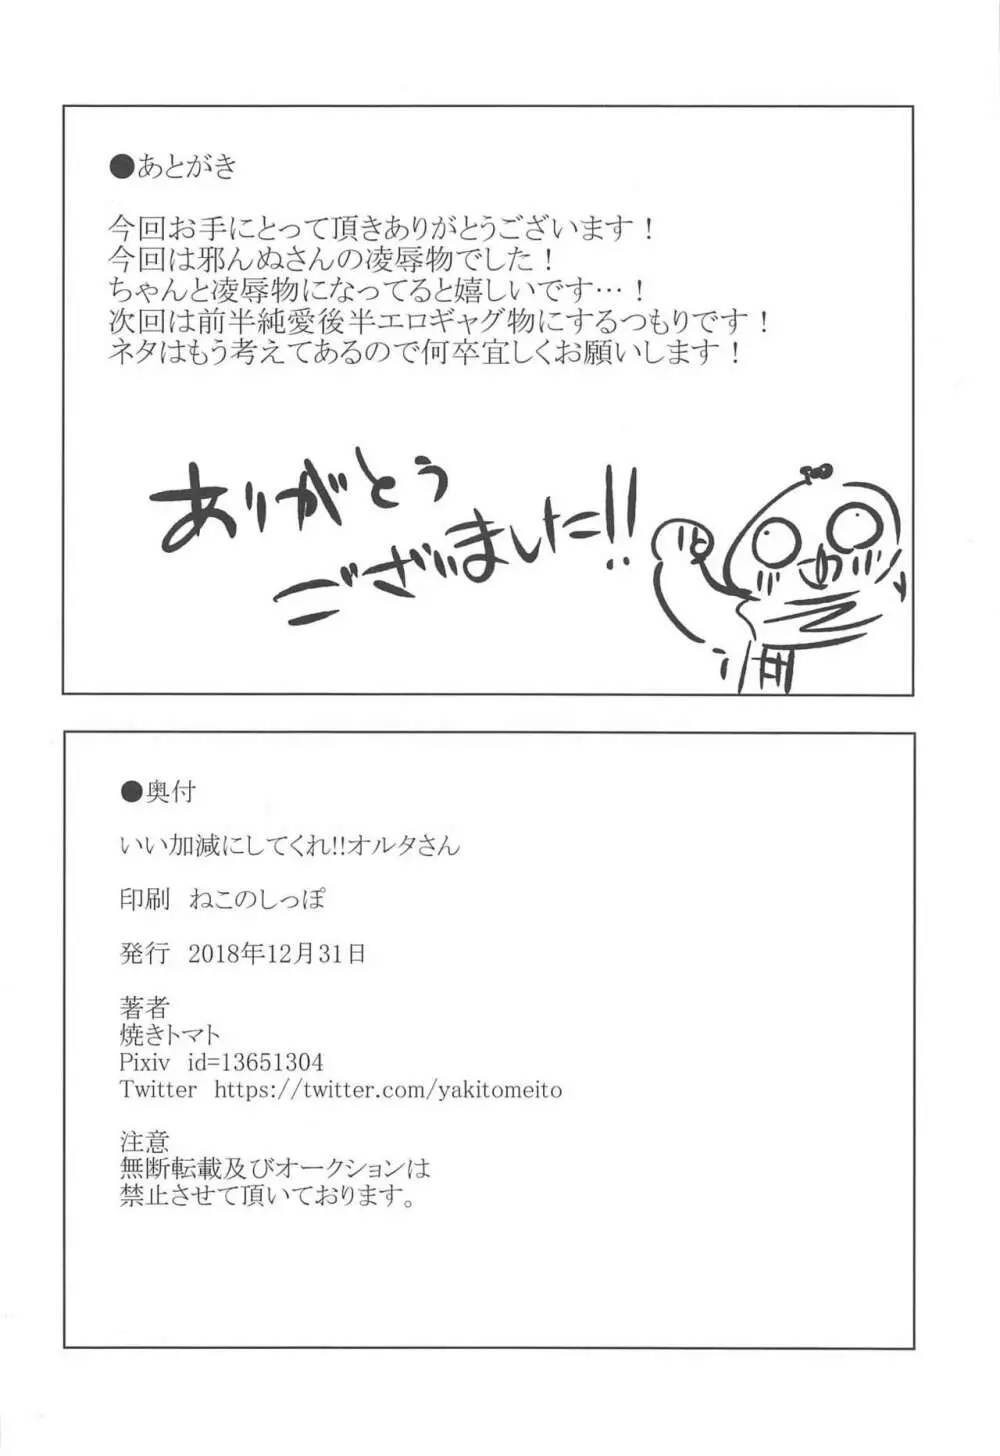 ●あとがき
今回お手にとって頂きありがとうございます！
今回は邪んぬさんの凌辱物でした！
ちゃんと凌辱物になってると嬉しいです…！
次回は前半純愛後半エロギャグ物にするつもりです！
ネタはもう考えてあるので何卒宜しくお願いします！
ありがとう
ございました!!
●奥付
いい加減にしてくれ!!オルタさん
印刷　ねこのしっぽ
発行　2018年12月31日
著者
焼きトマト
Pixiv　id=13651304
Twitter　https://twitter.com/yakitomeito
注意
無断転載及びオークションは
禁止させて頂いております。